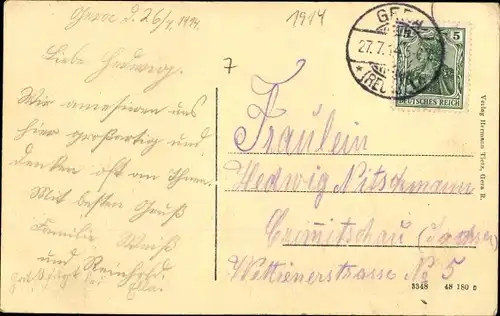 Gera d. 26/7. 1914.
Liebe Hedwig.
Wir amesieren uns
hier großartig und
denken oft an Ihnen.
Mit besten Gruß
Familie Weiß
und Reinhold
bei Ella.
1914
7
GERA
27.7.14
* (REUSS)
5
DEUTSCHES REICH
Fräulein
Hedwig Nitschmann
Crimitschau (Sachsen)
Wettienerstrasse No 5
Verlag Hermann Tietz, Gera R.
3548 48 180 D